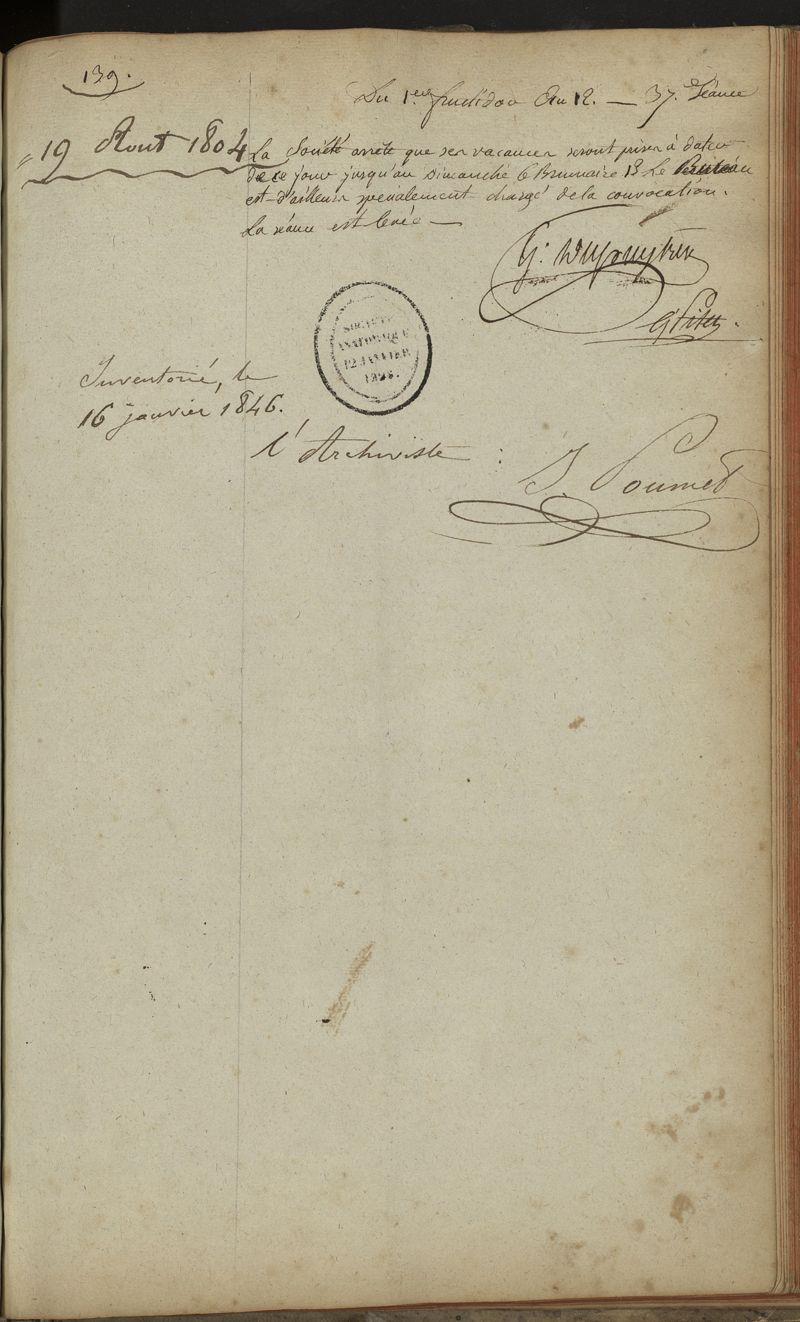 139.
Du 1er fructidor An 12. — 37e Séance
19 Aout 1804
La Société arrete que ses vacances seront prises à dater
de ce jour jusqu'au Dimanche 6 Brumaire 13 Le Bureau
est d'ailleurs specialement chargé de la convocation.
La séance est levée —
G. Dupuytren
SOCIÉTÉ
ANATOMIQUE
12 JANVIER
1826.
Inventorié, le
16 janvier 1846.
l'Archiviste :
J. Poumet